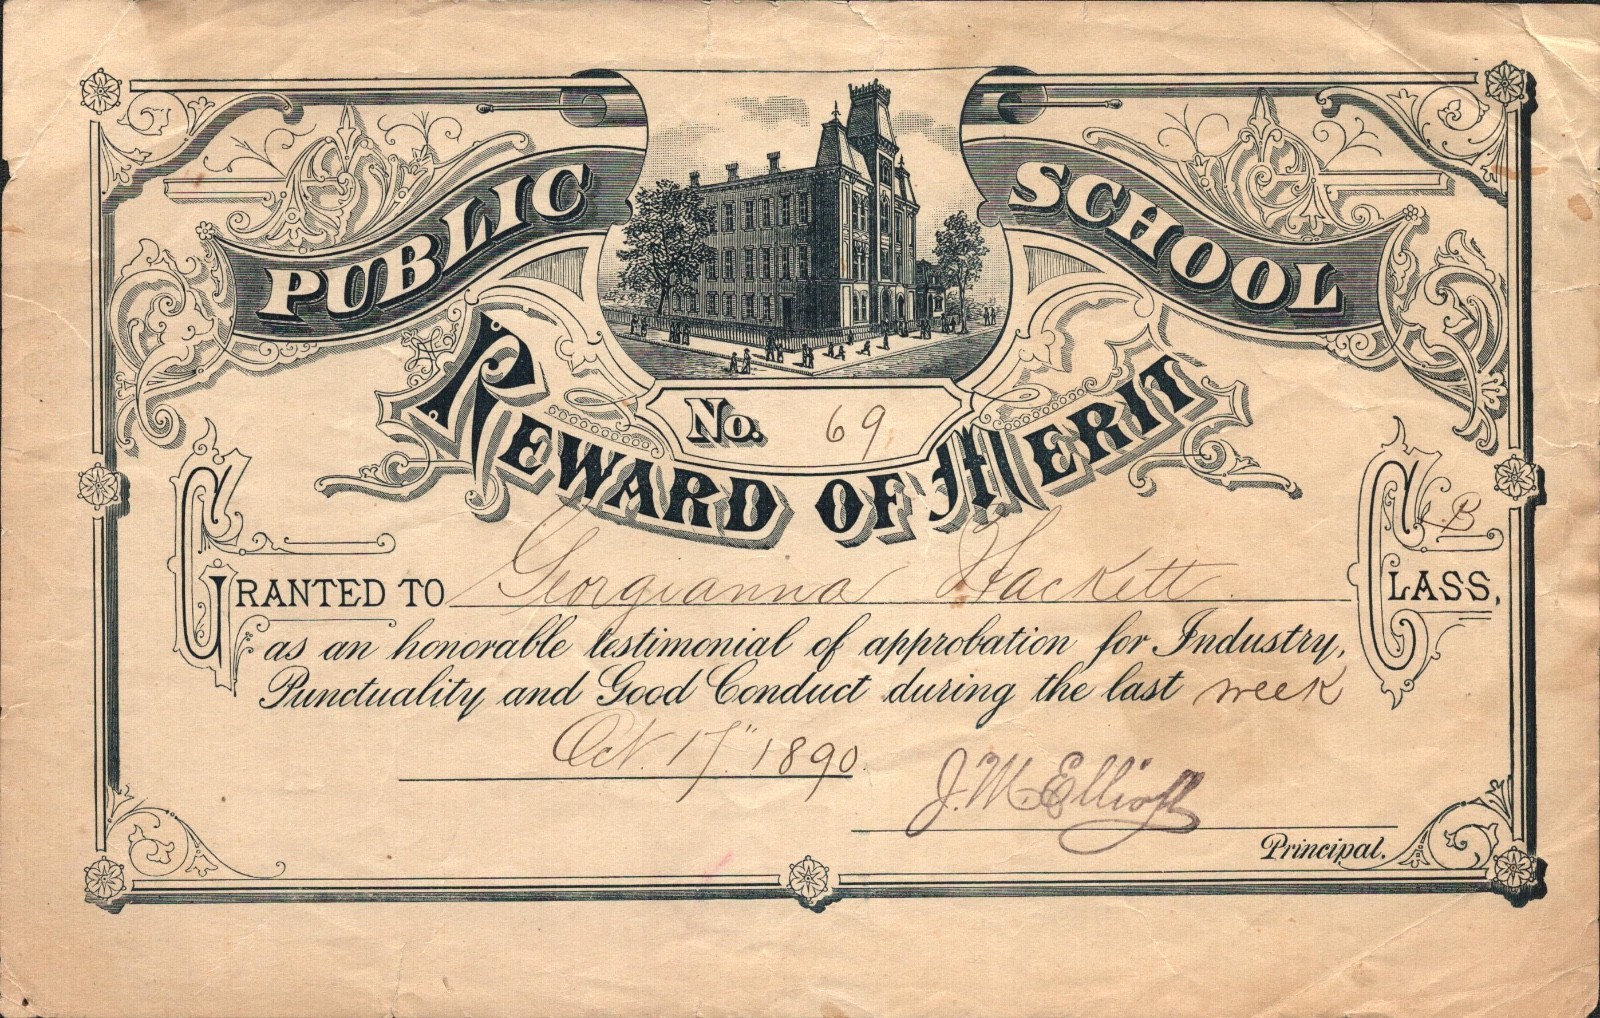 PUBLIC SCHOOL
No. 69
REWARD OF MERIT
B
GRANTED TO Georgianna Hackett. CLASS,
as an honorable testimonial of approbation for Industry,
Punctuality and Good Conduct during the last week
Oct. 17" 1890.
J. M. Elliott
Principal.